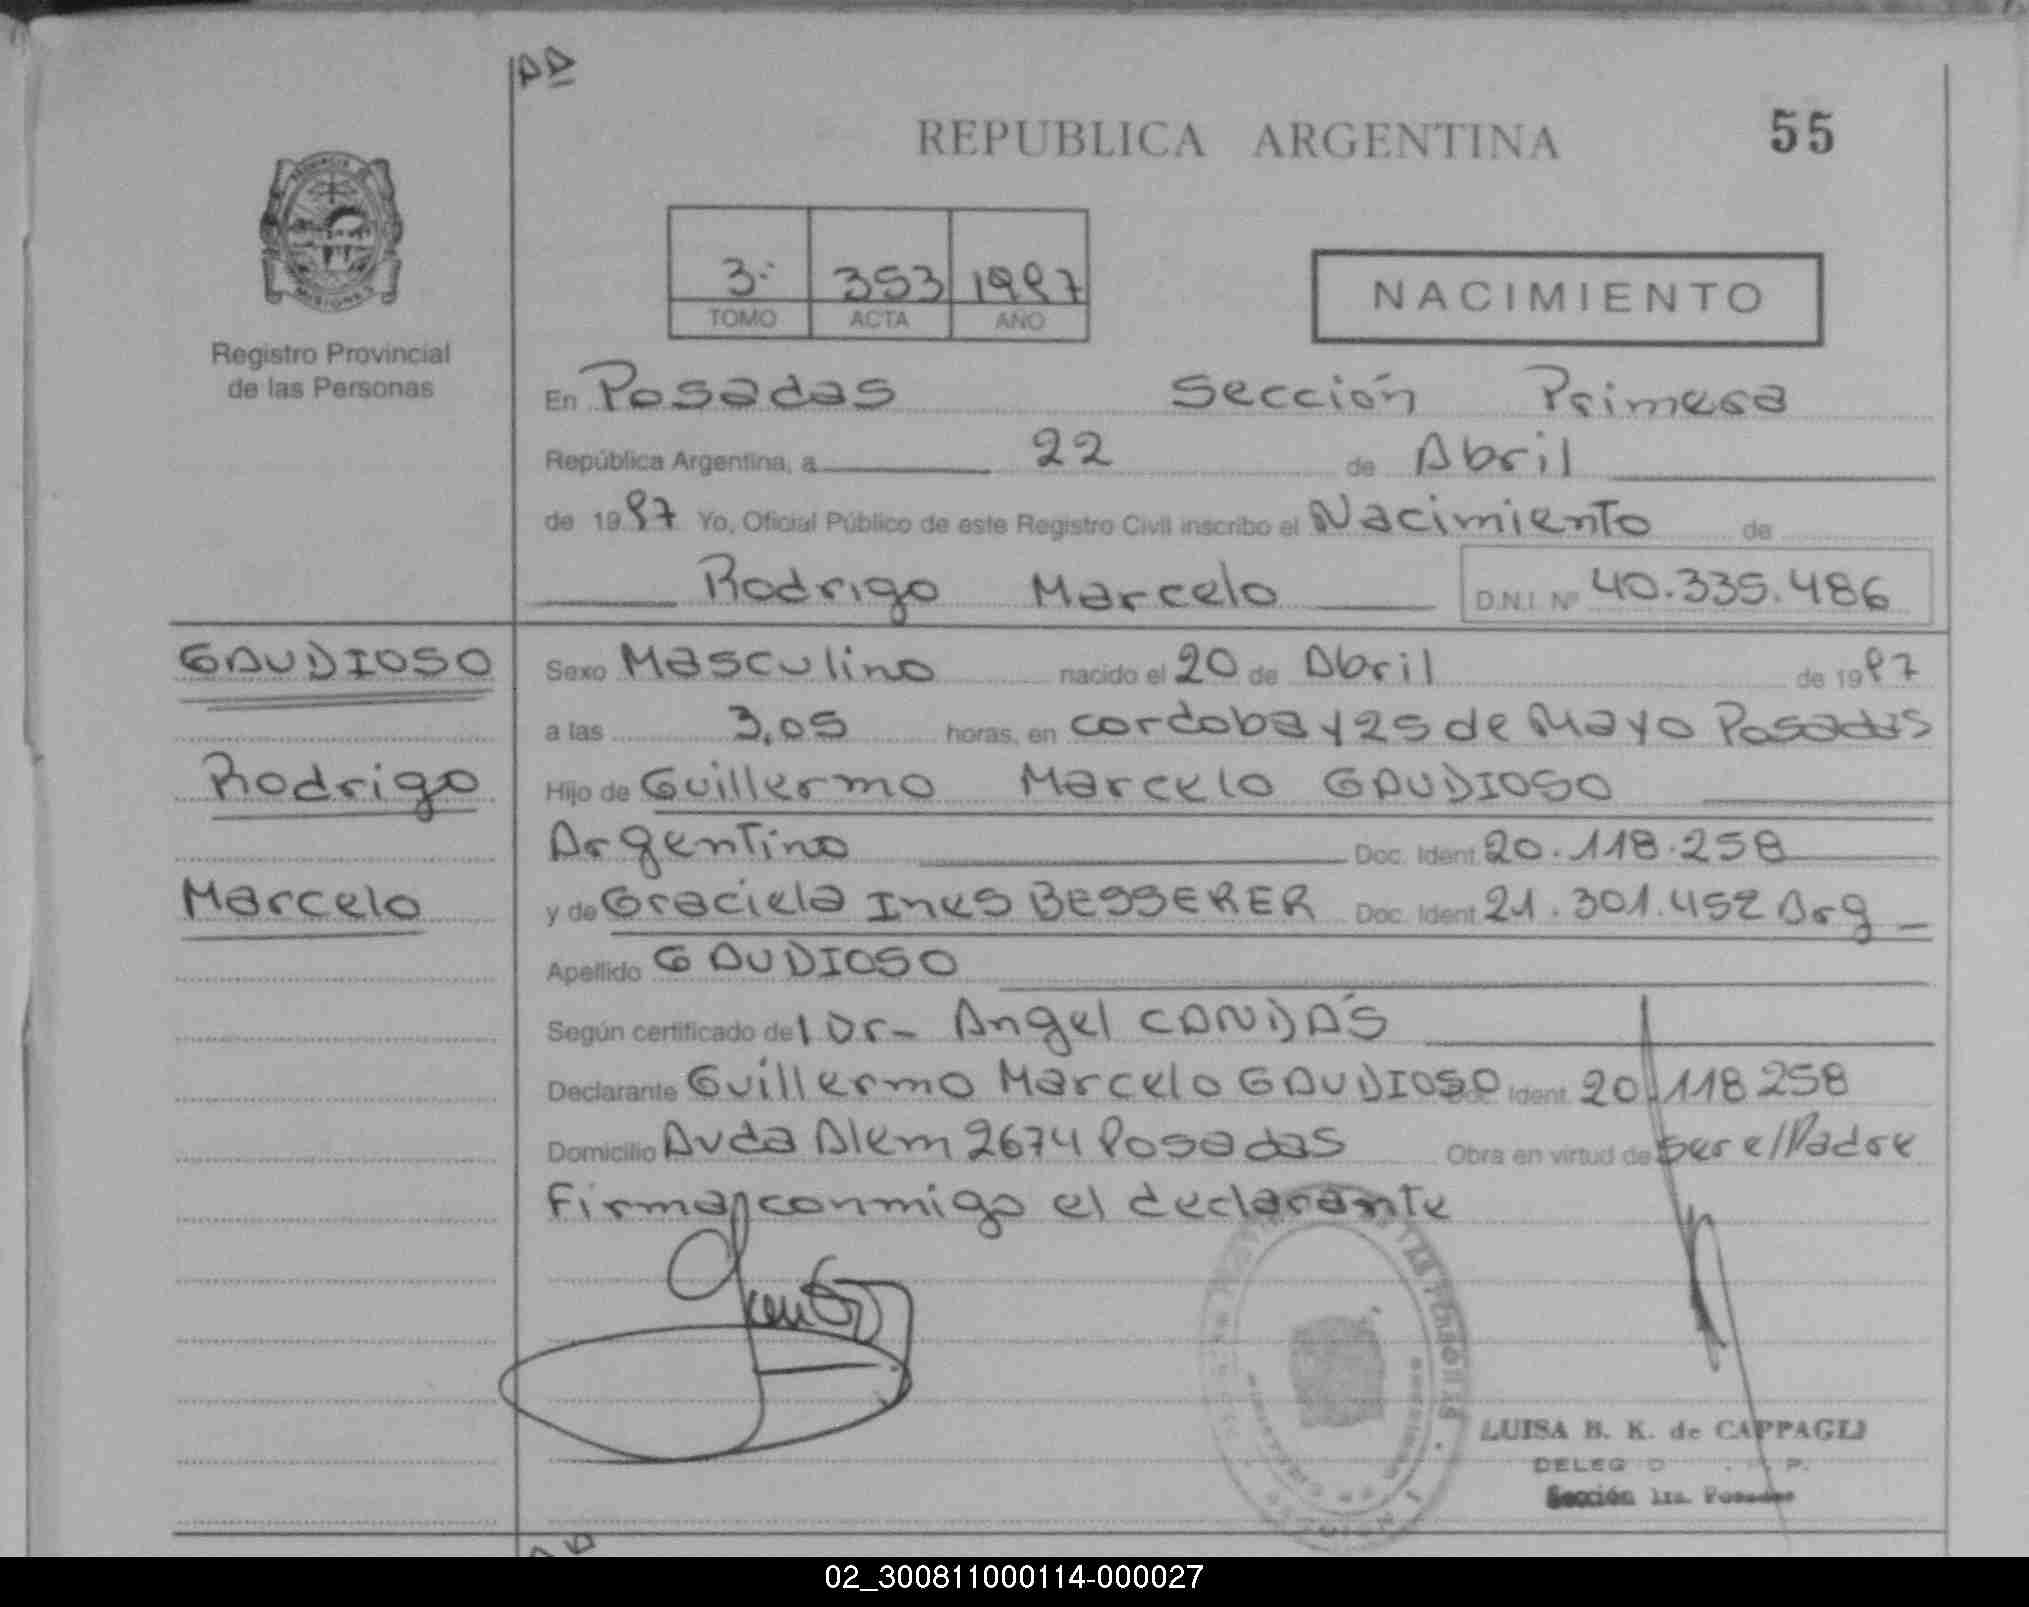 AA
REPUBLICA ARGENTINA 55
PROVINCIA DE MISIONES
3. 353 1997
TOMO ACTA AÑO
NACIMIENTO
Registro Provincial
de las Personas
En Posadas Sección Primera
República Argentina, a 22 de Abril
de 1997 Yo, Oficial Público de este Registro Civil inscribo el Nacimiento de
Rodrigo Marcelo D.N.I. Nº 40.335.486
GAUDIOSO
Rodrigo
Marcelo
Sexo Masculino nacido el 20 de Abril de 1997
a las 3,05 horas, en cordoba y 25 de Mayo Posadas
Hijo de Guillermo Marcelo GAUDIOSO
Argentino Doc. Ident. 20.118.258
y de Graciela Ines BESSERER Doc. Ident. 21.301.452 Arg
Apellido GAUDIOSO
Según certificado del Dr- Angel CANDÁS
Declarante Guillermo Marcelo GAUDIOSO Ident. 20.118 258
Domicilio Avda Alem 2674 Posadas Obra en virtud de ser el Padre
Firma conmigo el declarante
LUISA B. K. de CAPPAGLI
Sección 1ra. Posadas
02_300811000114-000027